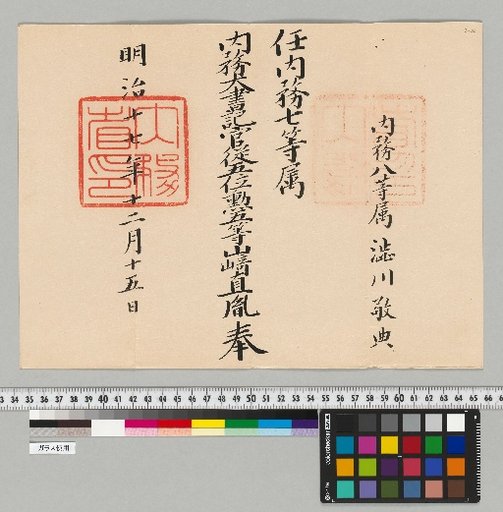 内務八等属 澁川敬典
任内務七等属
内務大書記官従五位勲五等山﨑直胤奉
明治十七年十二月十五日
内務省印
34 35 36 37 38 39 40 41 42 43 44 45 46 47 48 49 50 51 52 53 54 55 56 57 58 59 60 61 62 63 64 65 66
ガラス使用